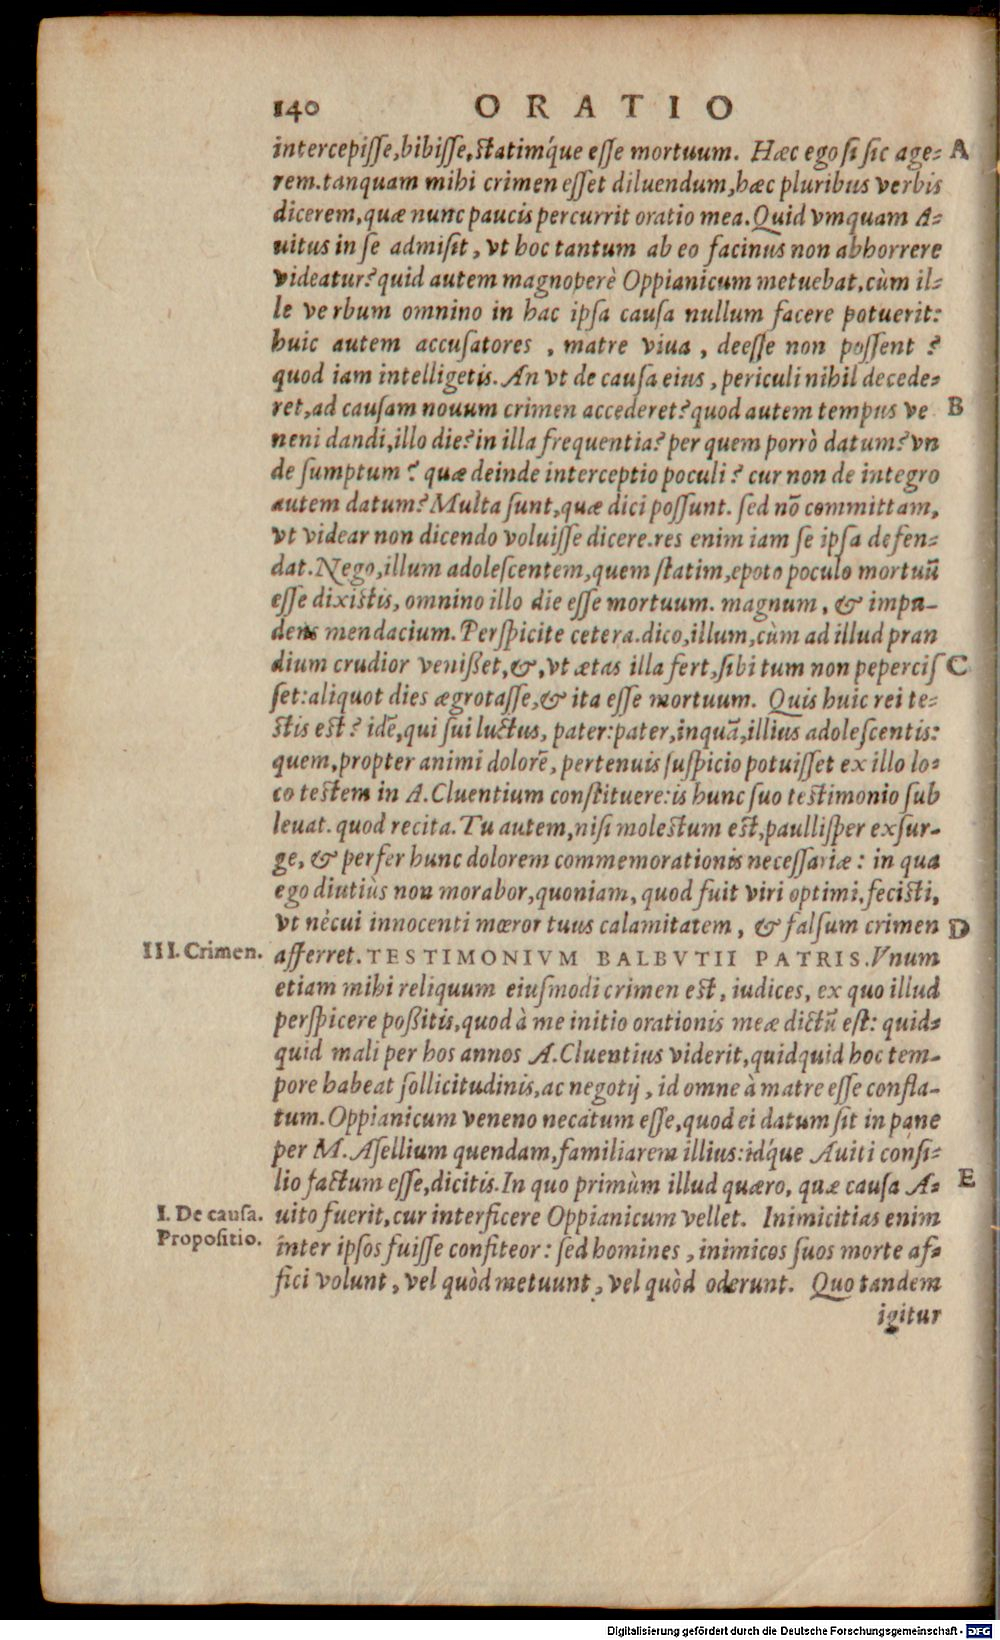 140 ORATIO
intercepiſſe,bibiſſe,ſtatimq́ue eſſe mortuum. Hæc ego ſi ſic age= A
rem.tanquam mihi crimen eſſet diluendum,hæc pluribus verbis
dicerem,quæ nunc paucis percurrit oratio mea.Quid vmquam A=
uitus in ſe admiſit, vt hoc tantum ab eo facinus non abhorrere
videatur?quid autem magnoperè Oppianicum metuebat,cùm il=
le verbum omnino in hac ipſa cauſa nullum facere potuerit:
huic autem accuſatores , matre viua , deeſſe non poſſent ?
quod iam intelligetis.An vt de cauſa eius, periculi nihil decede=
ret,ad cauſam nouum crimen accederet?quod autem tempus ve B
neni dandi,illo die?in illa frequentia?per quem porrò datum?vn
de ſumptum? quæ deinde interceptio poculi? cur non de integro
autem datum?Multa ſunt,quæ dici poſſunt. ſed nō committam,
vt videar non dicendo voluiſſe dicere.res enim iam ſe ipſa defen=
dat.Nego,illum adoleſcentem,quem ſtatim,epoto poculo mortuū
eſſe dixiſtis, omnino illo die eſſe mortuum. magnum, & impu-
dens mendacium.Perſpicite cetera.dico,illum,cùm ad illud pran
dium crudior venißet,&,vt ætas illa fert,ſibi tum non peperciſ C
ſet:aliquot dies ægrotaſſe,& ita eſſe mortuum. Quis huic rei te=
ſtis eſt? idē,qui ſui luctus, pater:pater,inquā,illius adoleſcentis:
quem,propter animi dolorē, pertenuis ſuſpicio potuiſſet ex illo lo=
co teſtem in A.Cluentium conſtituere:is hunc ſuo teſtimonio ſub
leuat. quod recita.Tu autem,niſi moleſtum eſt,paulliſper exſur-
ge, & perfer hunc dolorem commemorationis neceſſariæ: in qua
ego diutiùs non morabor,quoniam, quod fuit viri optimi,feciſti,
vt nécui innocenti mœror tuus calamitatem, & falſum crimen D
III.Crimen. afferret.TESTIMONIVM BALBVTII PATRIS.Vnum
etiam mihi reliquum eiuſmodi crimen eſt, iudices, ex quo illud
perſpicere poßitis,quod à me initio orationis meæ dictū eſt: quid=
quid mali per hos annos A.Cluentius viderit,quidquid hoc tem-
pore habeat ſollicitudinis,ac negotij, id omne à matre eſſe confla-
tum.Oppianicum veneno necatum eſſe,quod ei datum ſit in pane
per M. Aſellium quendam,familiarem illius:idq́ue Auiti conſi=
lio factum eſſe,dicitis.In quo primùm illud quæro, quæ cauſa A= E
I. De cauſa. uito fuerit,cur interficere Oppianicum vellet. Inimicitias enim
Propoſitio. inter ipſos fuiſſe confiteor: ſed homines, inimicos ſuos morte af=
fici volunt, vel quòd metuunt, vel quòd oderunt. Quo tandem
igitur
Digitalisierung gefördert durch die Deutsche Forschungsgemeinschaft - DFG